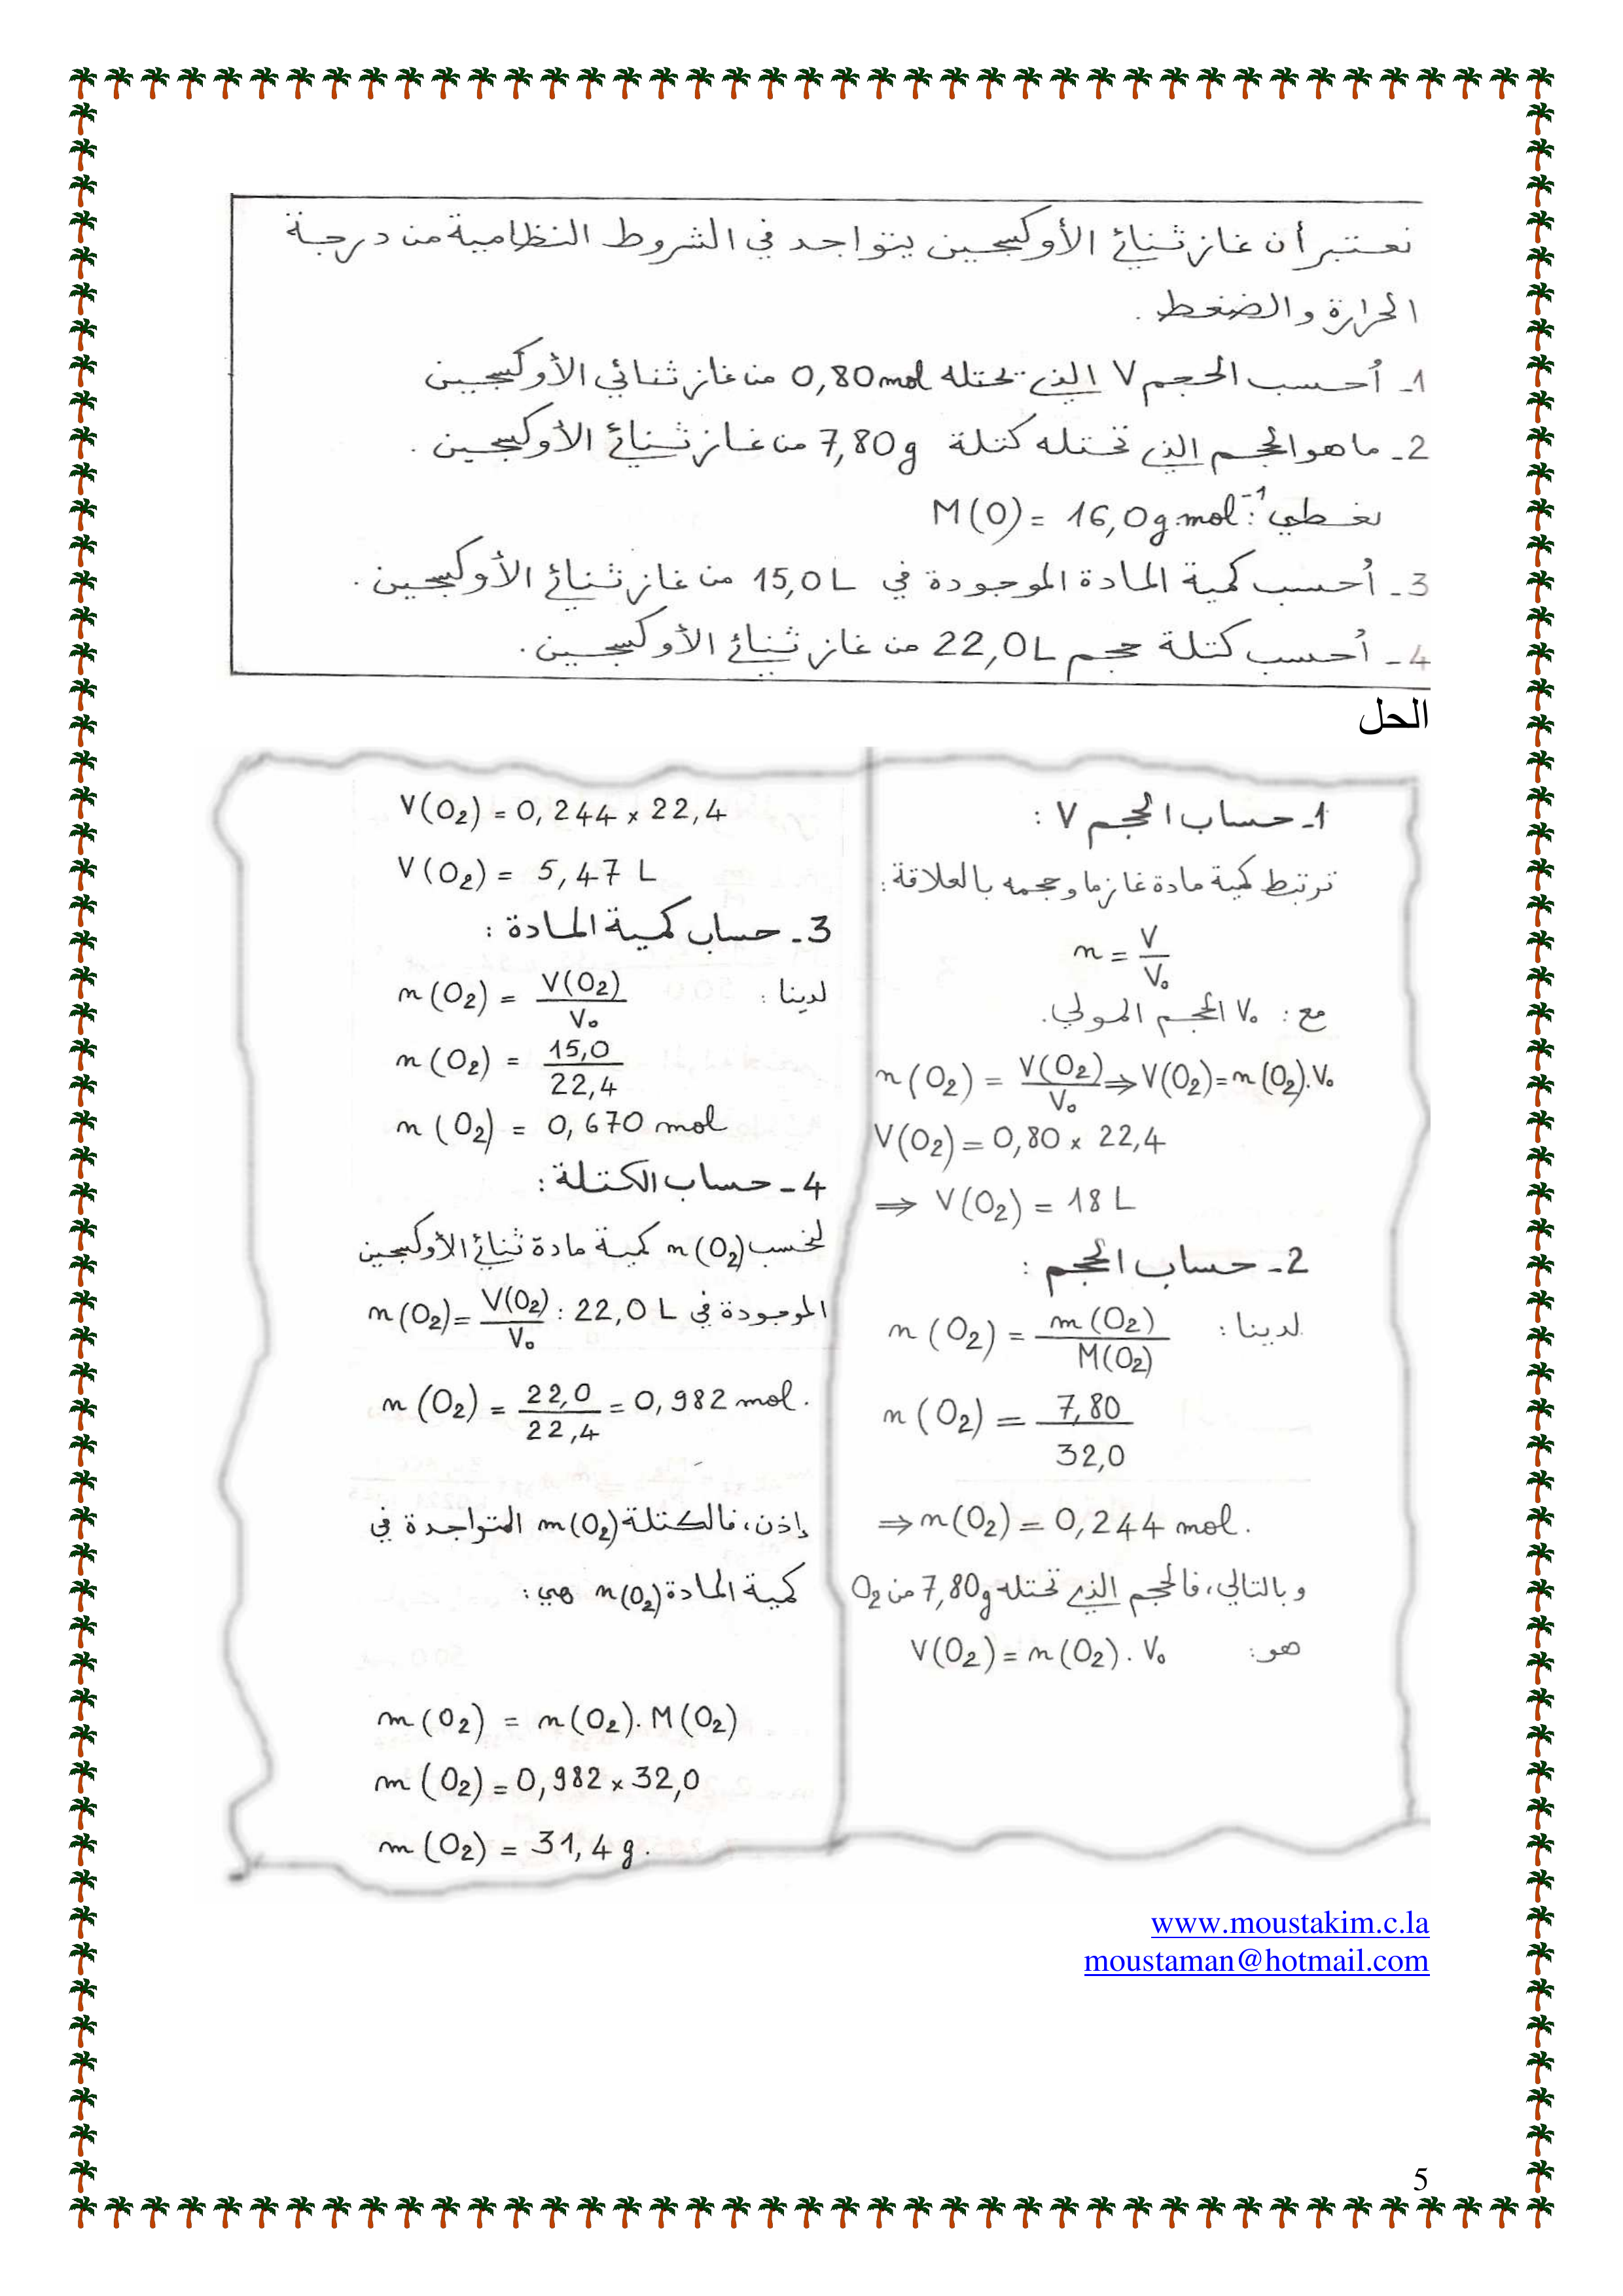 نعتبر أن غاز ثنائي الأوكسجين يتواجد في الشروط النظامية من درجة
الحرارة والضغط.
1- أحسب الحجم V الذي تحتله 0,80 mol من غاز ثنائي الأوكسجين
2- ما هو الحجم الذي تحتله كتلة 7,80 g من غاز ثنائي الأوكسجين.
نعطي: M(O) = 16,0 g.mol⁻¹
3- أحسب كمية المادة الموجودة في 15,0 L من غاز ثنائي الأوكسجين.
4- أحسب كتلة حجم 22,0 L من غاز ثنائي الأوكسجين.
الحل
1- حساب الحجم V :
ترتبط كمية مادة غاز ما وحجمه بالعلاقة:
n = V / V₀
مع : V₀ الحجم المولي.
n(O₂) = V(O₂) / V₀ ⇒ V(O₂) = n(O₂).V₀
V(O₂) = 0,80 × 22,4
⇒ V(O₂) = 18 L
2- حساب الحجم :
لدينا : n(O₂) = m(O₂) / M(O₂)
n(O₂) = 7,80 / 32,0
⇒ n(O₂) = 0,244 mol.
وبالتالي، فالحجم الذي تحتله 7,80 g من O₂
هو: V(O₂) = n(O₂) . V₀
V(O₂) = 0,244 × 22,4
V(O₂) = 5,47 L
3- حساب كمية المادة :
لدينا : n(O₂) = V(O₂) / V₀
n(O₂) = 15,0 / 22,4
n(O₂) = 0,670 mol
4- حساب الكتلة :
لنحسب n(O₂) كمية مادة ثنائي الأوكسجين
الموجودة في 22,0 L : n(O₂) = V(O₂) / V₀
n(O₂) = 22,0 / 22,4 = 0,982 mol.
إذن، فالكتلة m(O₂) المتواجدة في
كمية المادة n(O₂) هي:
m(O₂) = n(O₂). M(O₂)
m(O₂) = 0,982 × 32,0
m(O₂) = 31,4 g.
www.moustakim.c.la
moustaman@hotmail.com
5